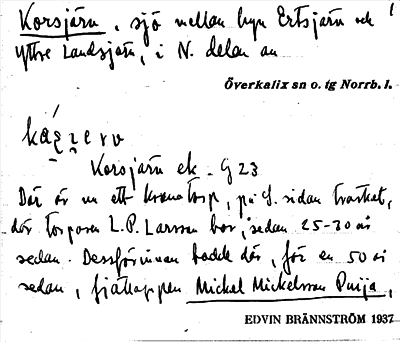 Korsjärn, sjö mellan byn Ertsjärn och
yttre Landsjärn, i N. delen av
Överkalix sn o. tg Norrb. l.
Korsjärn ek. G 23
Där är nu ett kronotorp, på S. sidan träsket,
där torparen L. P. Larsson bor, sedan 25-30 år
sedan. Dessförinnan bodde där, för en 50 år
sedan, fjällappen Mickel Mickelsson Puija,
EDVIN BRÄNNSTRÖM 1937